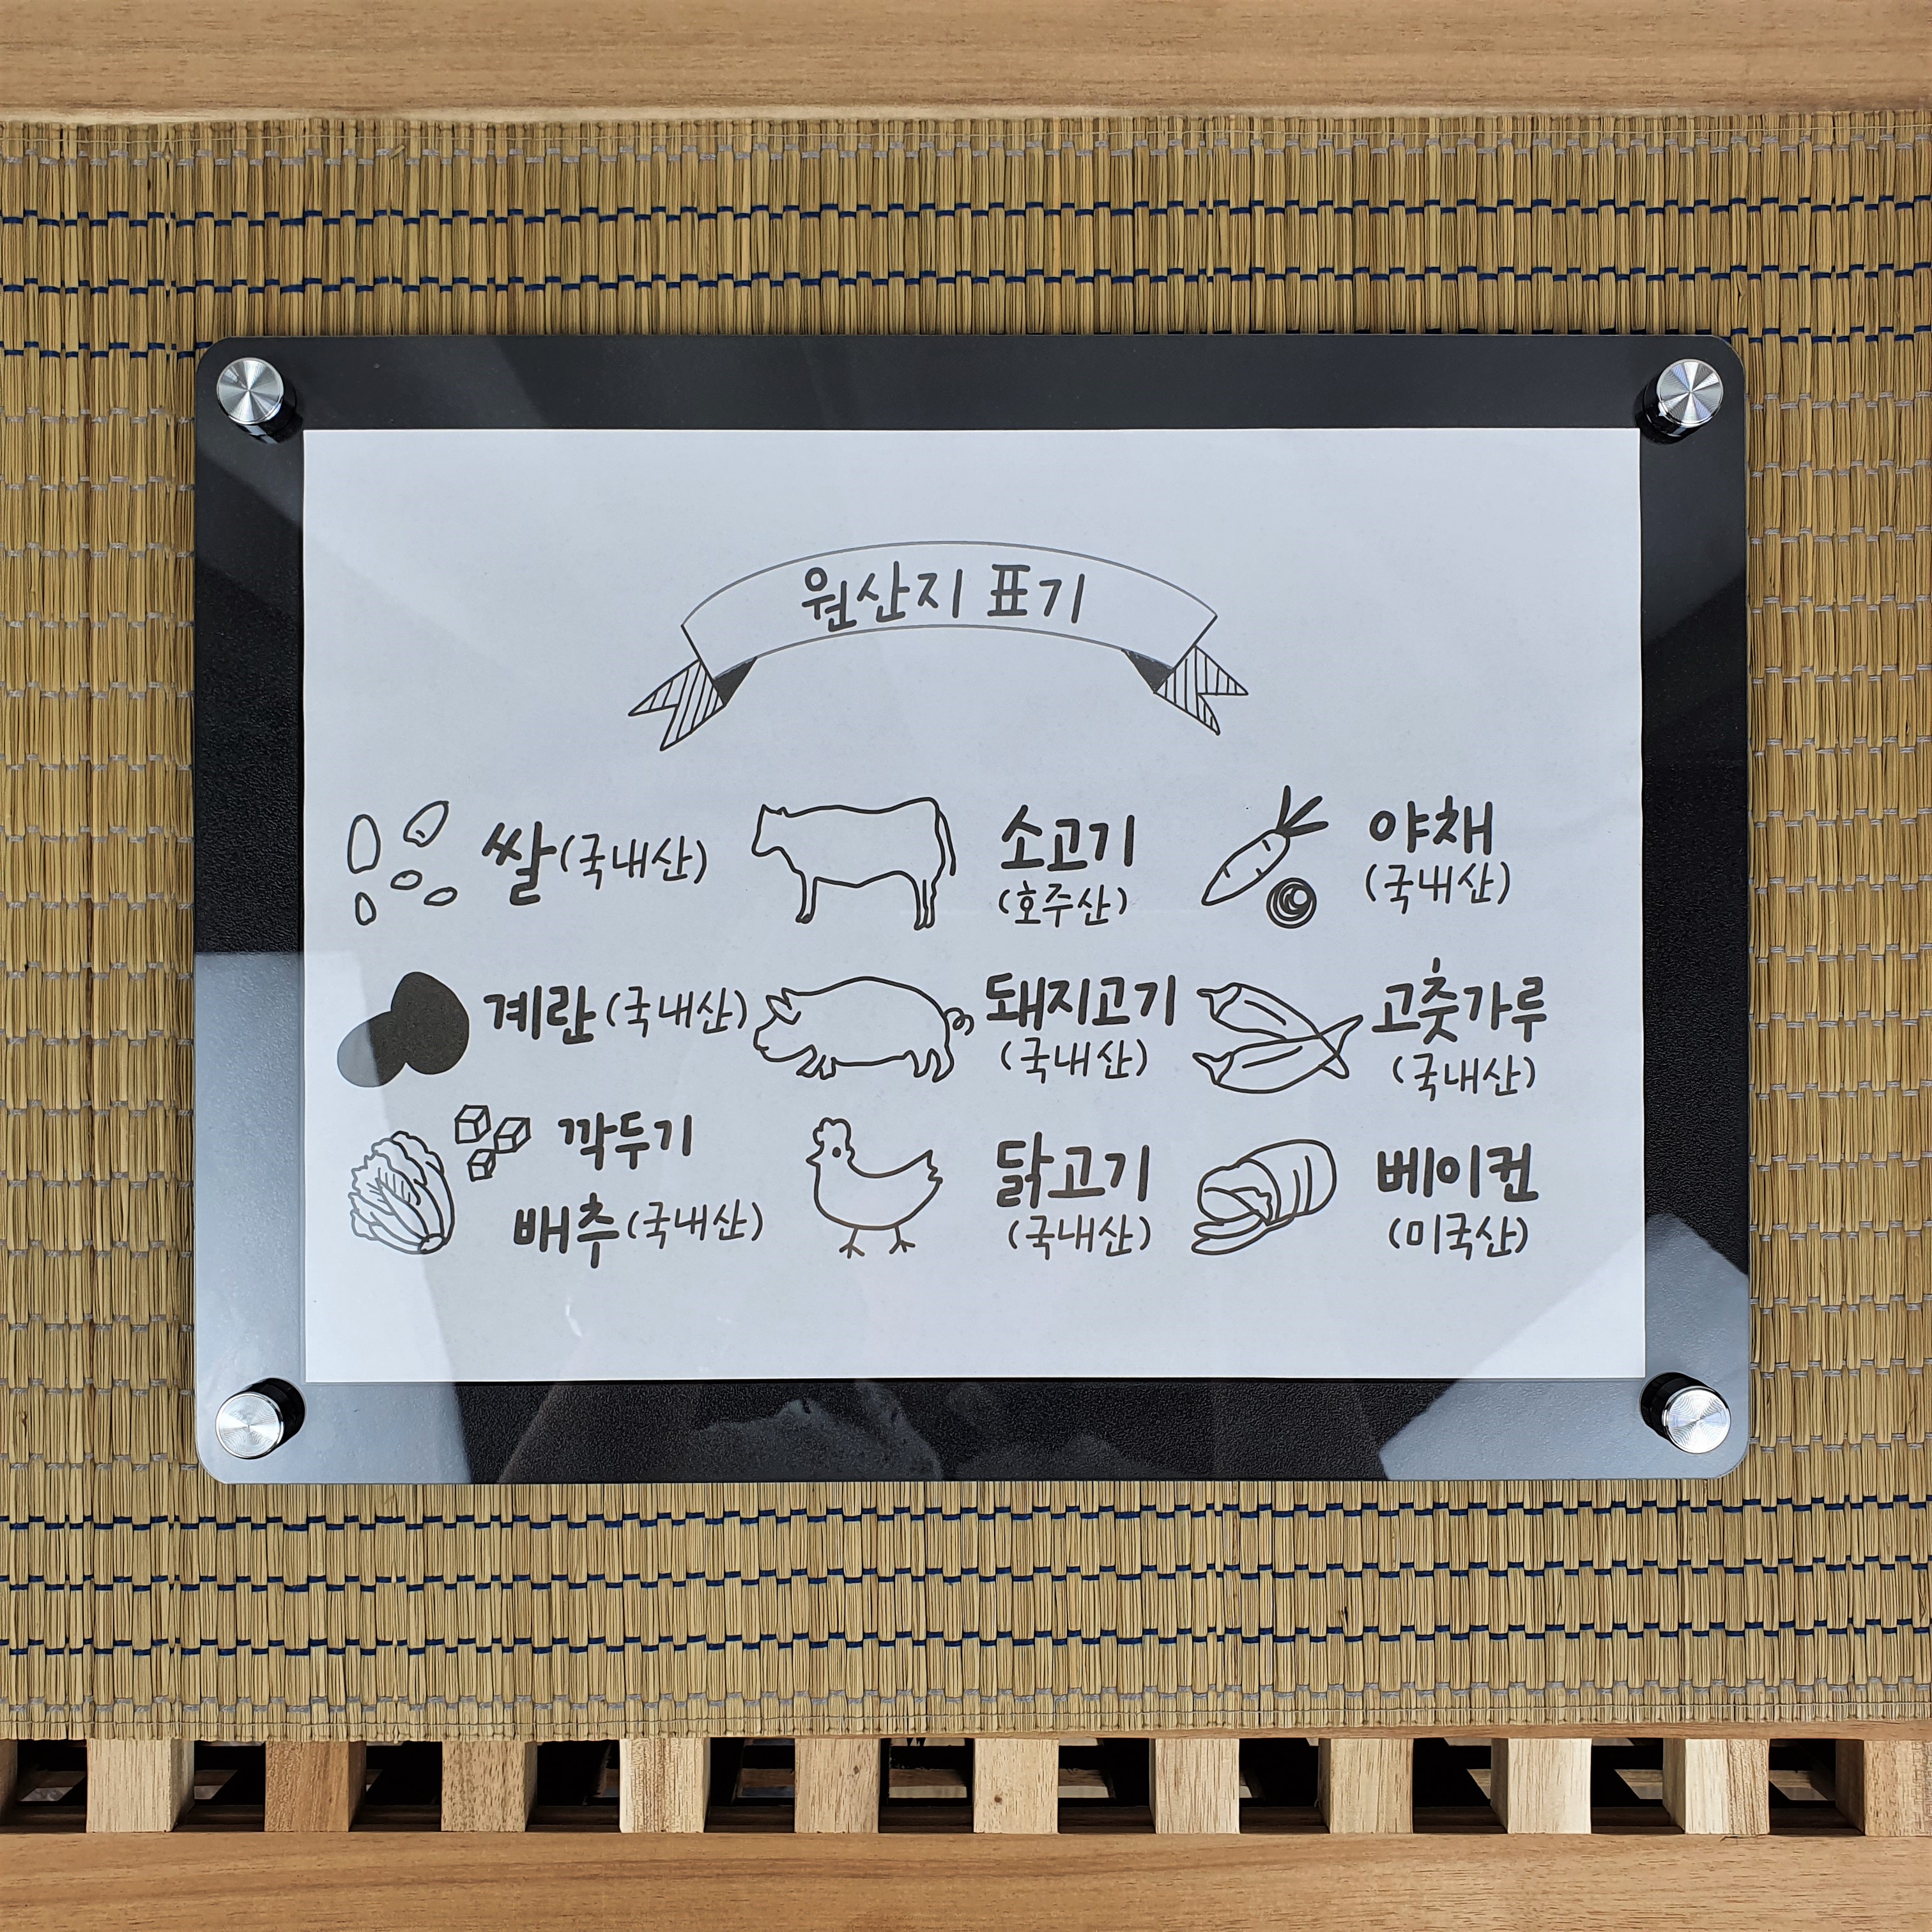 원산지 표기
쌀(국내산)
소고기
(호주산)
야채
(국내산)
계란(국내산)
돼지고기
(국내산)
고춧가루
(국내산)
깍두기
배추(국내산)
닭고기
(국내산)
베이컨
(미국산)